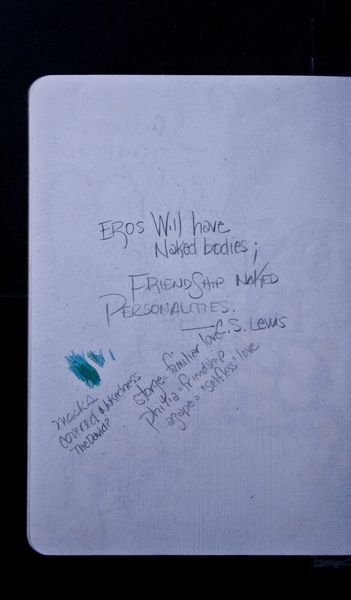 EROS Will have
Naked bodies;
FRIENDSHIP NAKED
PERSONALITIES.
—C.S. Lewis
storge= familier love
philia=friendship
agape= "selfless" love
masks
covered Nakedness
The David?